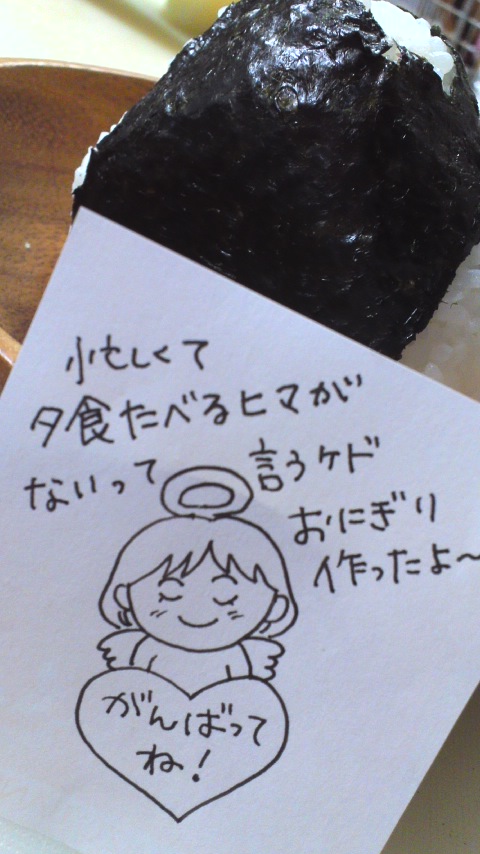 忙しくて
夕食たべるヒマが
ないって言うケド
おにぎり
作ったよ〜
がんばって
ね!